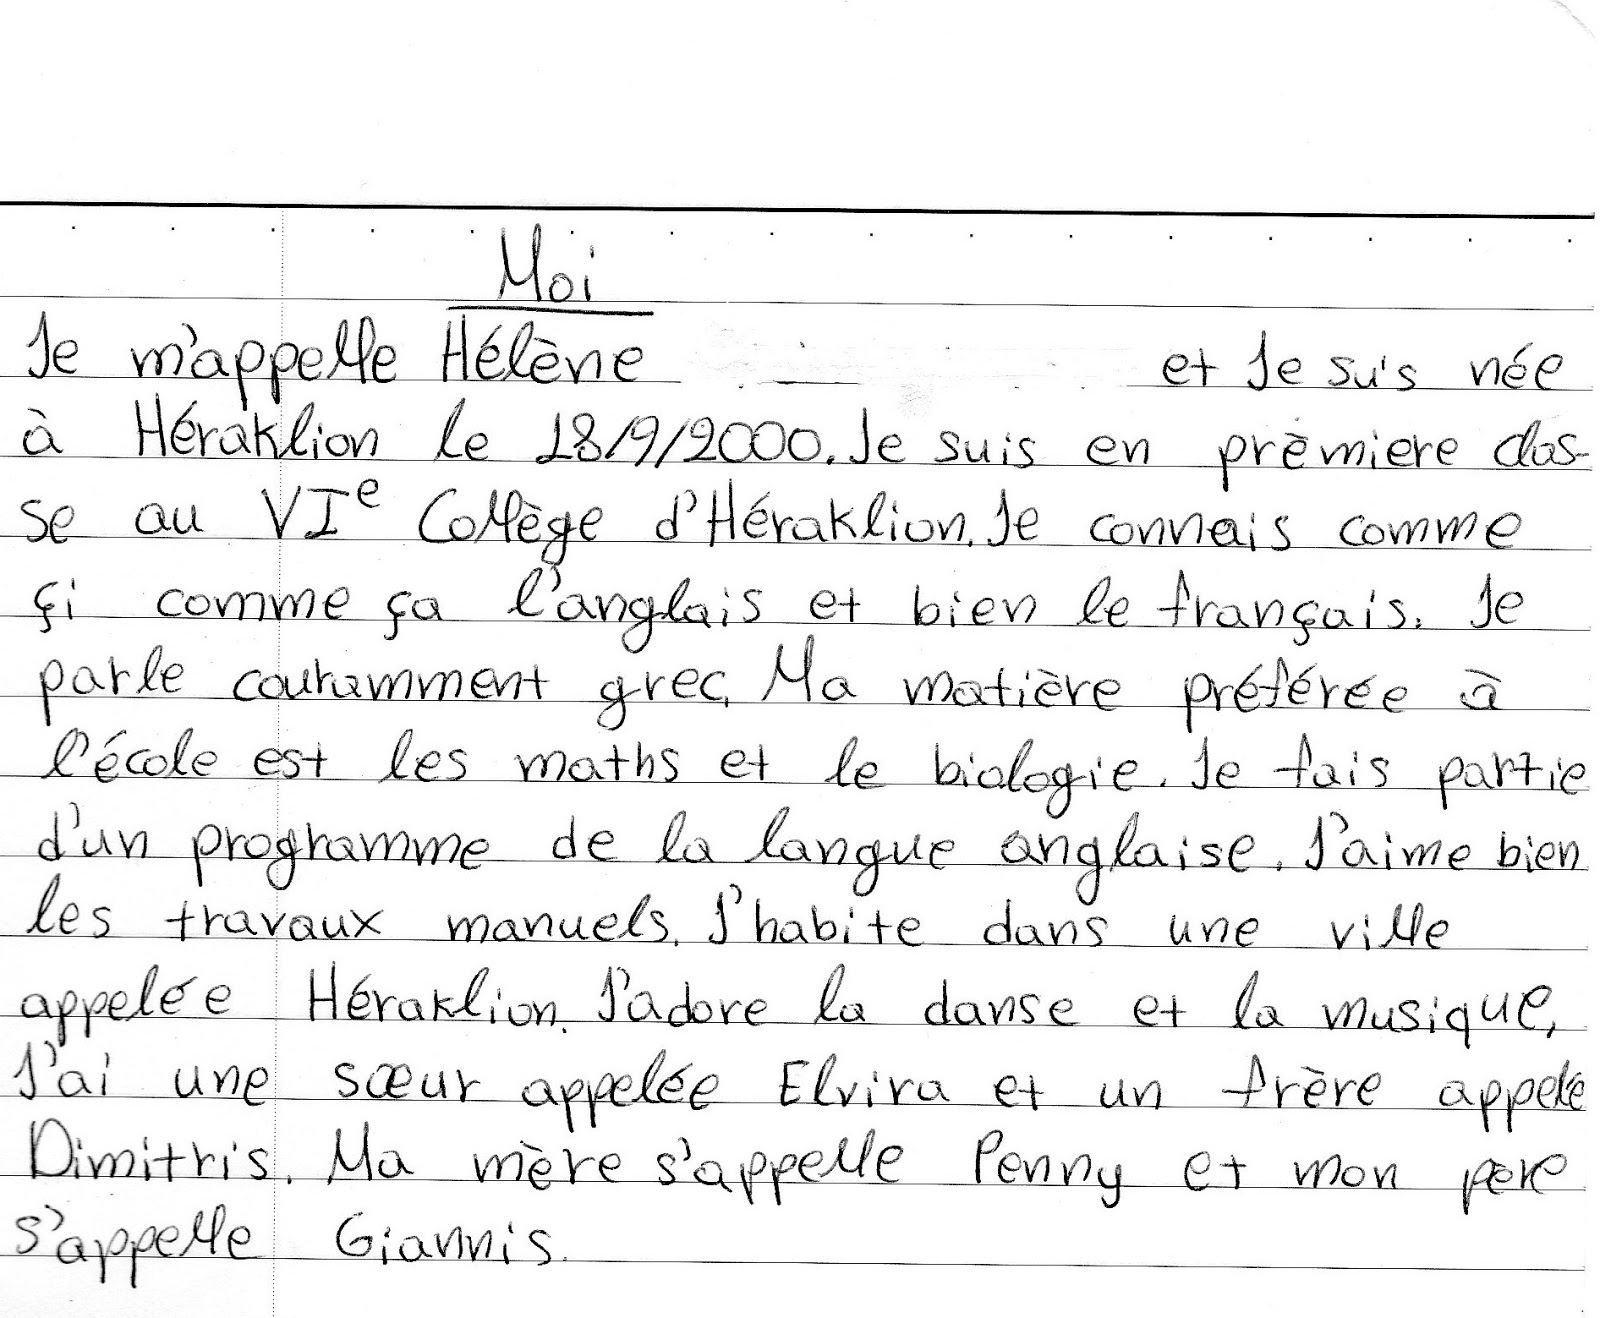 Moi
Je m'appelle Hélène et Je suis née
à Héraklion le 18/9/2000. Je suis en prèmiere clas-
se au VIe Collège d'Héraklion. Je connais comme
çi comme ça l'anglais et bien le français. Je
parle couramment grec. Ma matière préférée à
l'école est les maths et le biologie. Je fais partie
d'un programme de la langue anglaise. J'aime bien
les travaux manuels. J'habite dans une ville
appelée Héraklion. J'adore la danse et la musique,
J'ai une sœur appelée Elvira et un frère appelé
Dimitris. Ma mère s'appelle Penny et mon père
s'appelle Giannis.